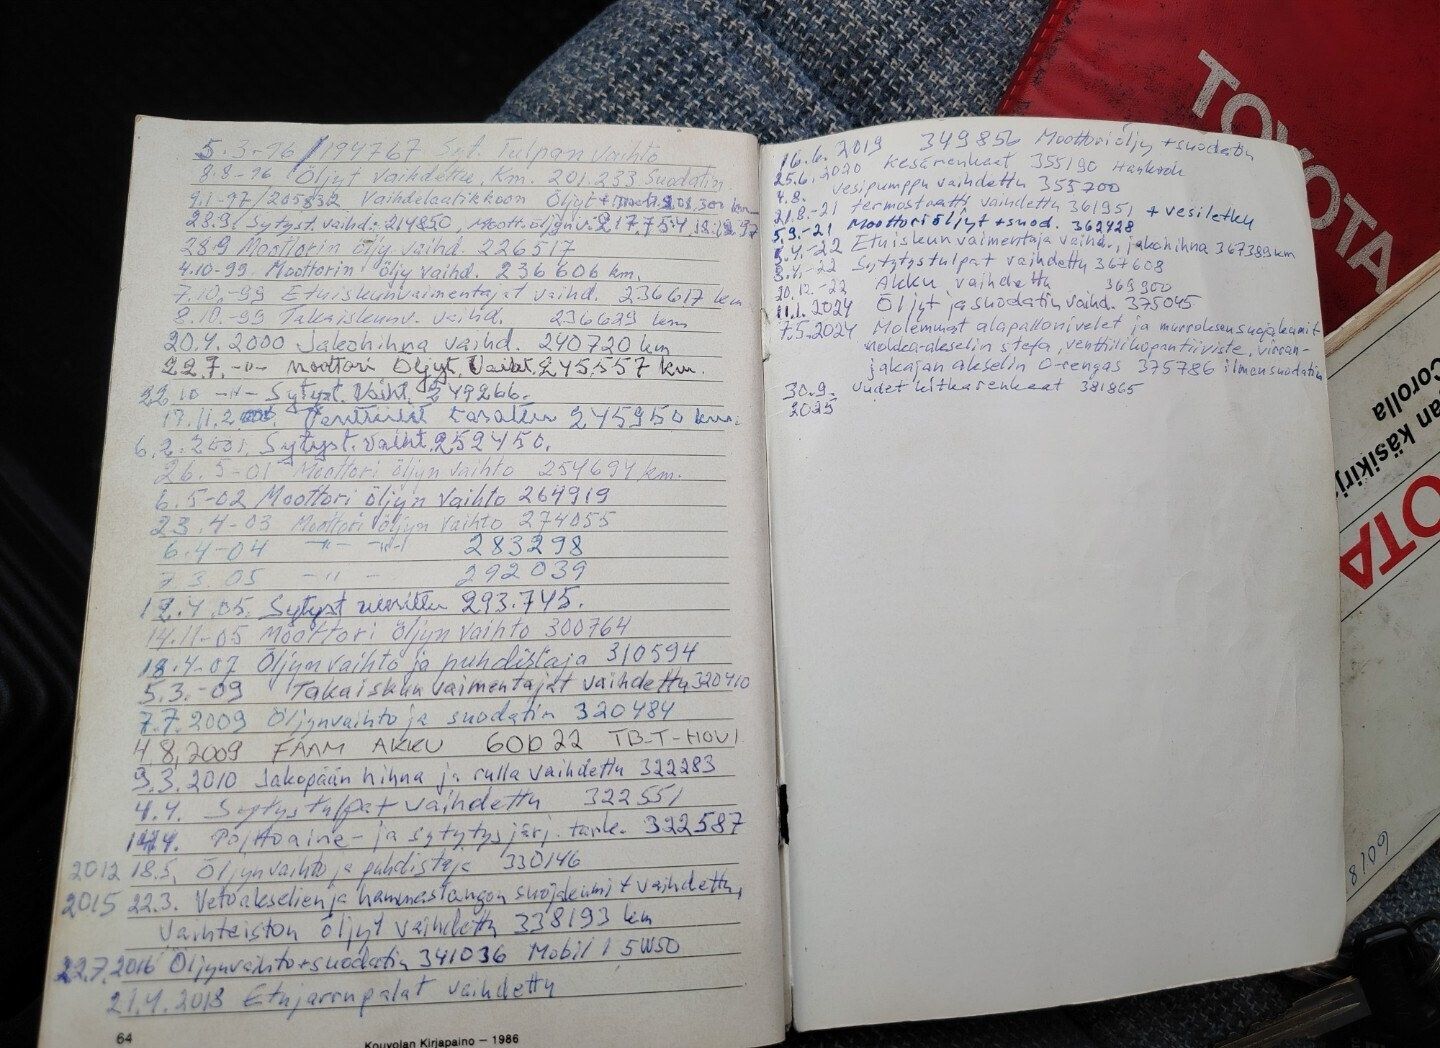 5.3-96 / 194767 Syt. Tulpan vaihto
8.8-96 Öljyt Vaihdettu, Km. 201.233 Suodatin.
9.1-97/205832 Vaihdelaatikkoon Öljyt
28.9/ Sytyst. vaihd: 214850, Moott.öljy 217.754, 18.12.97
28.9 Moottorin öljy vaihd. 226517
4.10-99. Moottorin öljy vaihd. 236606 km.
7.10.-99 Etuiskunvaimentajat vaihd. 236617 km
8.10.-99 Takaiskunv. vaihd. 236629 km
20.4.2000 Jakohihna vaihd. 240720 km
22.7. -"- moottori Öljyt. Vaiht. 245557 km.
22.10 -"- Sytyst. Vaiht. 249266.
17.11.2000. 245950 km.
6.2.2001. Sytyst. vaiht. 252450.
26.5-01 Moottori öljyn vaihto 254694 km.
6.5-02 Moottori öljyn vaihto 264919
23.4-03 Moottori öljyn vaihto 274055
6.4-04 -"- -"- 283298
7.3.05 -"- - 292039
12.4.05. Sytyst 293.745.
14.11-05 Moottori öljyn vaihto 300764
18.4-07 Öljynvaihto ja puhdistaja 310594
5.3.-09 Takaiskun vaimentajat vaihdettu 320410
7.7.2009 Öljynvaihto ja suodatin 320484
4.8,2009 FAAM AKKU 600 22 TB-T-HOVI
3.3.2010 Jakopään hihna ja rulla vaihdettu 322283
4.4. Sytystulpat vaihdettu 322551
14.4. Polttoaine- ja sytytysjärj. tark. 322587
2012 18.5. Öljynvaihto ja puhdistaja 330146
2015 22.3. Vetoakselien ja hammastangon suojakumit vaihdettu,
Vaihteiston öljyt vaihdettu 338193 km
22.7.2016 Öljynvaihto+suodatin 341036 Mobil 1 5W50
21.4.2018 Etujarrupalat vaihdettu
64
Kouvolan Kirjapaino – 1986
16.6.2019 349856 Moottoriöljy + suodatin
25.6.2020 Kesärenkaat 355190 Hankook
4.8. Vesipumppu vaihdettu 355700
21.8.-21 termostaatti vaihdettu 361951 + vesiletku
5.9.-21 Moottoriöljyt + suod. 362428
5.4.-22 Etuiskunvaimentaja vaihd., jakohihna 367389 km
8.4.-22 Sytytystulpat vaihdettu 367608
20.12.-22 Akku vaihdettu 369900
11.1.2024 Öljyt ja suodatin vaihd. 375045
7.5.2024 Molemmat alapallonivelet ja murroksensuojakumit
nokka-akselin stefa, venttiilikopantiiviste, virran-
jakajan akselin O-rengas 375786 ilmansuodatin
30.9. Uudet kitkarenkaat 381865
2025
TOYOTA
Corolla
an käsikirj
OTA
8109